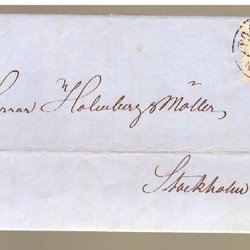 Holmberg & Möller,
Stockholm